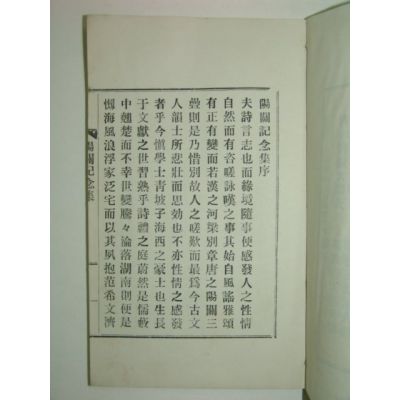 陽關記念集序
夫詩言志也而緣境隨事使感發人之性情
自然而有咨嗟詠嘆之事其始自風謠雅頌
有正有變而若漢之河梁別章唐之陽關三
疊則是乃惜別故人之嗟歎而最爲今古文
人韻士所悲壯而思効也不亦性情之感發
者乎今愼學士靑坡子海西之豪士也生長
于文獻之世習熟乎詩禮之庭蔚然是儒䕃
中翹楚而不幸世變騰々淪落湖南則便是
慟海風浪浮家泛宅而以其夙抱范希文濟
陽關記念集
一